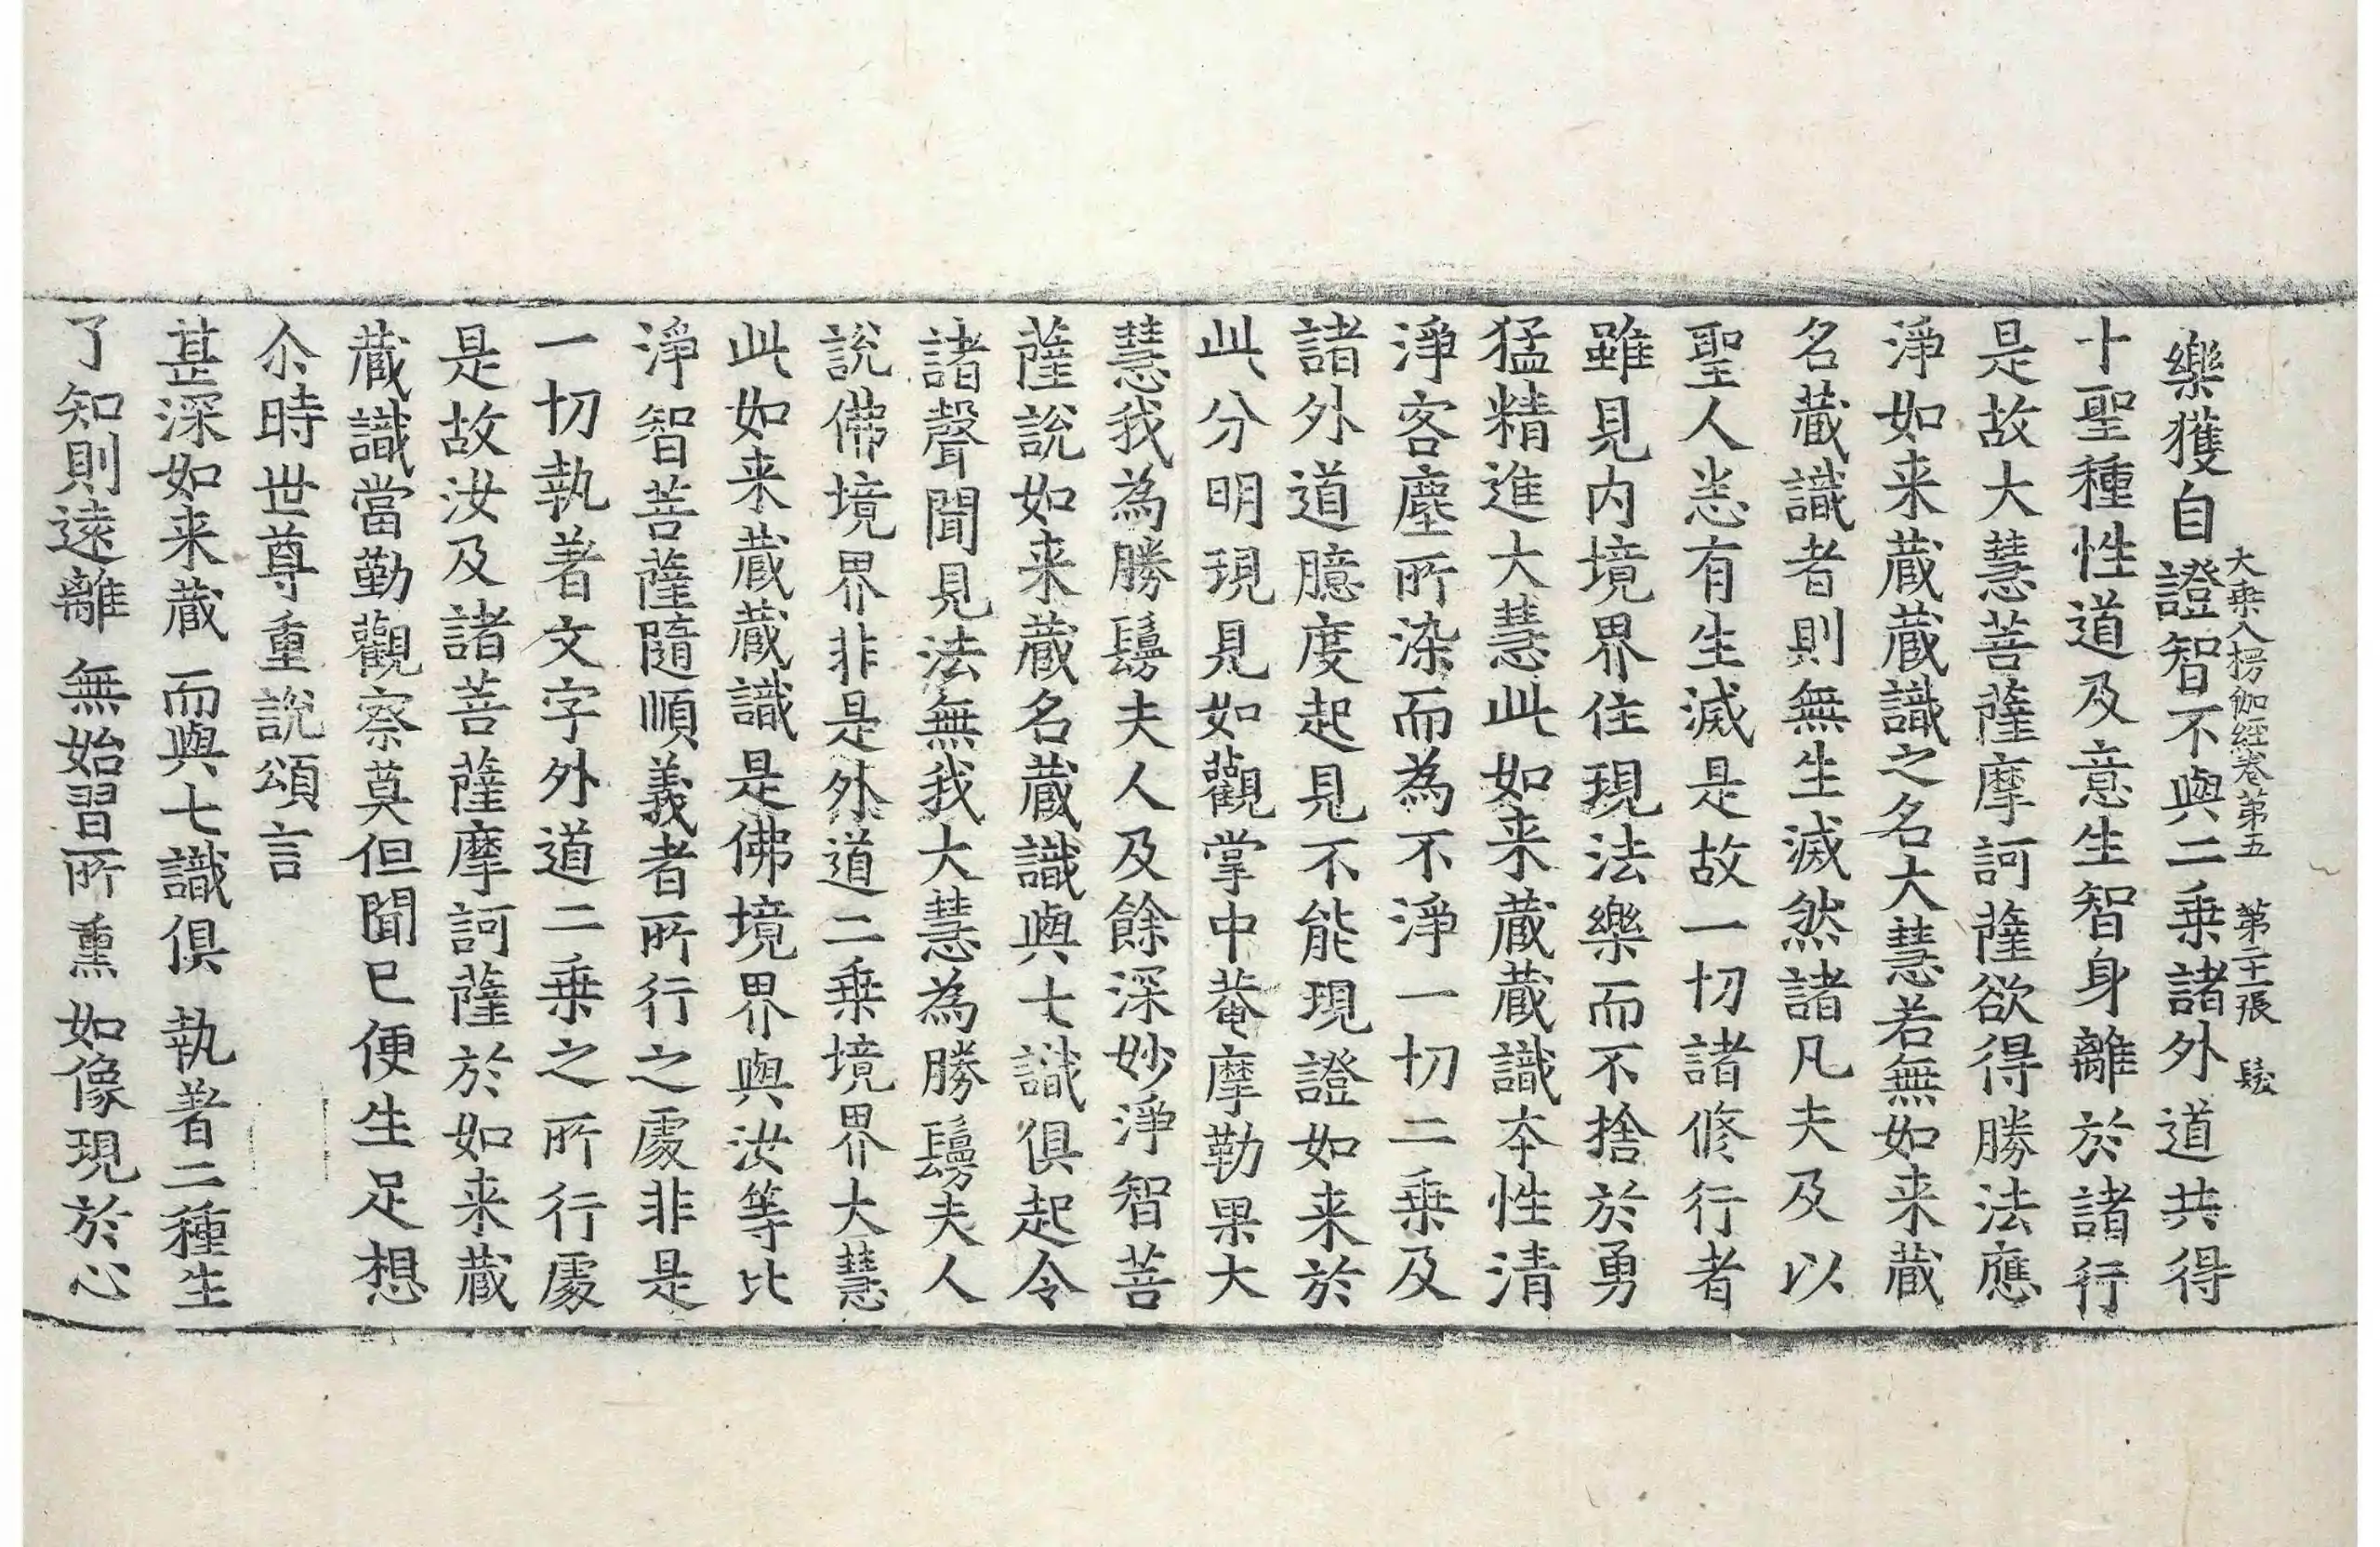 樂獲自證智不與二乗諸外道共得
大乗入楞伽經卷第五　第二十張　髮
十聖種性道及意生智身離於諸行
是故大慧菩薩摩訶薩欲得勝法應
淨如来蔵蔵識之名大慧若無如来蔵
名蔵識者則無生滅然諸凡夫及以
聖人悉有生滅是故一切諸修行者
雖見内境界住現法樂而不捨於勇
猛精進大慧此如来蔵蔵識夲性清
淨客塵所染而為不淨一切二乗及
諸外道臆度起見不能現證如来於
此分明現見如觀掌中菴摩勒果大
慧我為勝鬘夫人及餘深妙淨智菩
薩說如来蔵名蔵識與七識俱起令
諸聲聞見法無我大慧為勝鬘夫人
說佛境界非是外道二乗境界大慧
此如来蔵蔵識是佛境界與汝等比
淨智菩薩隨順義者所行之處非是
一切執著文字外道二乗之所行處
是故汝及諸菩薩摩訶薩於如来蔵
蔵識當勤觀察莫但聞已便生足想
尒時世尊重說頌言
甚深如来蔵　而與七識俱　執著二種生
了知則遠離　無始習所熏　如像現於心